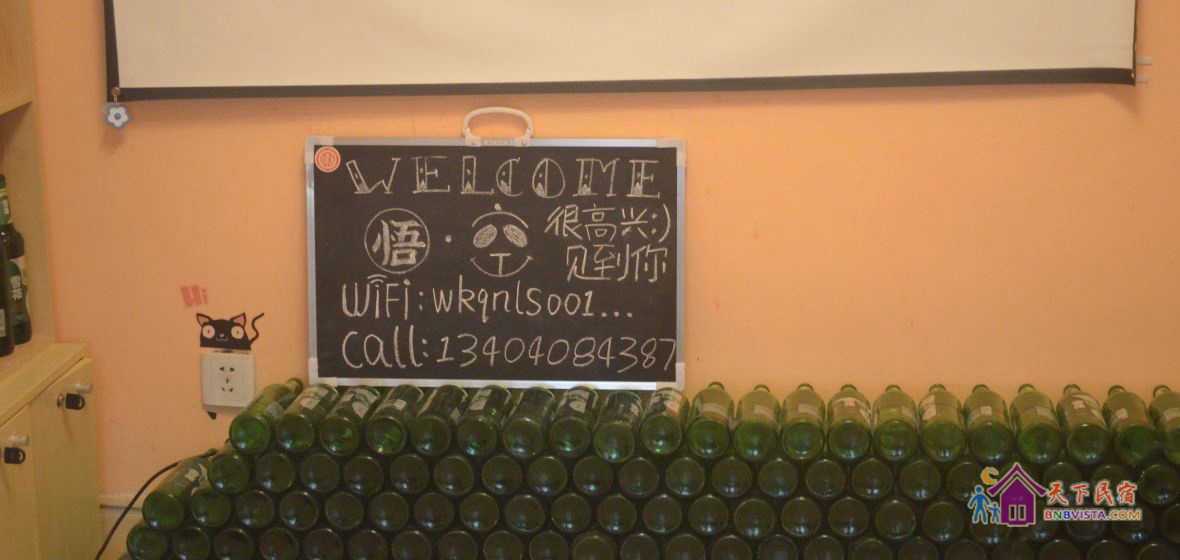 WELCOME
悟·
很高兴:)
见到你
WiFi:wkqnls001...
call:13404084387
Hi
天下民宿
BNBVISTA.COM